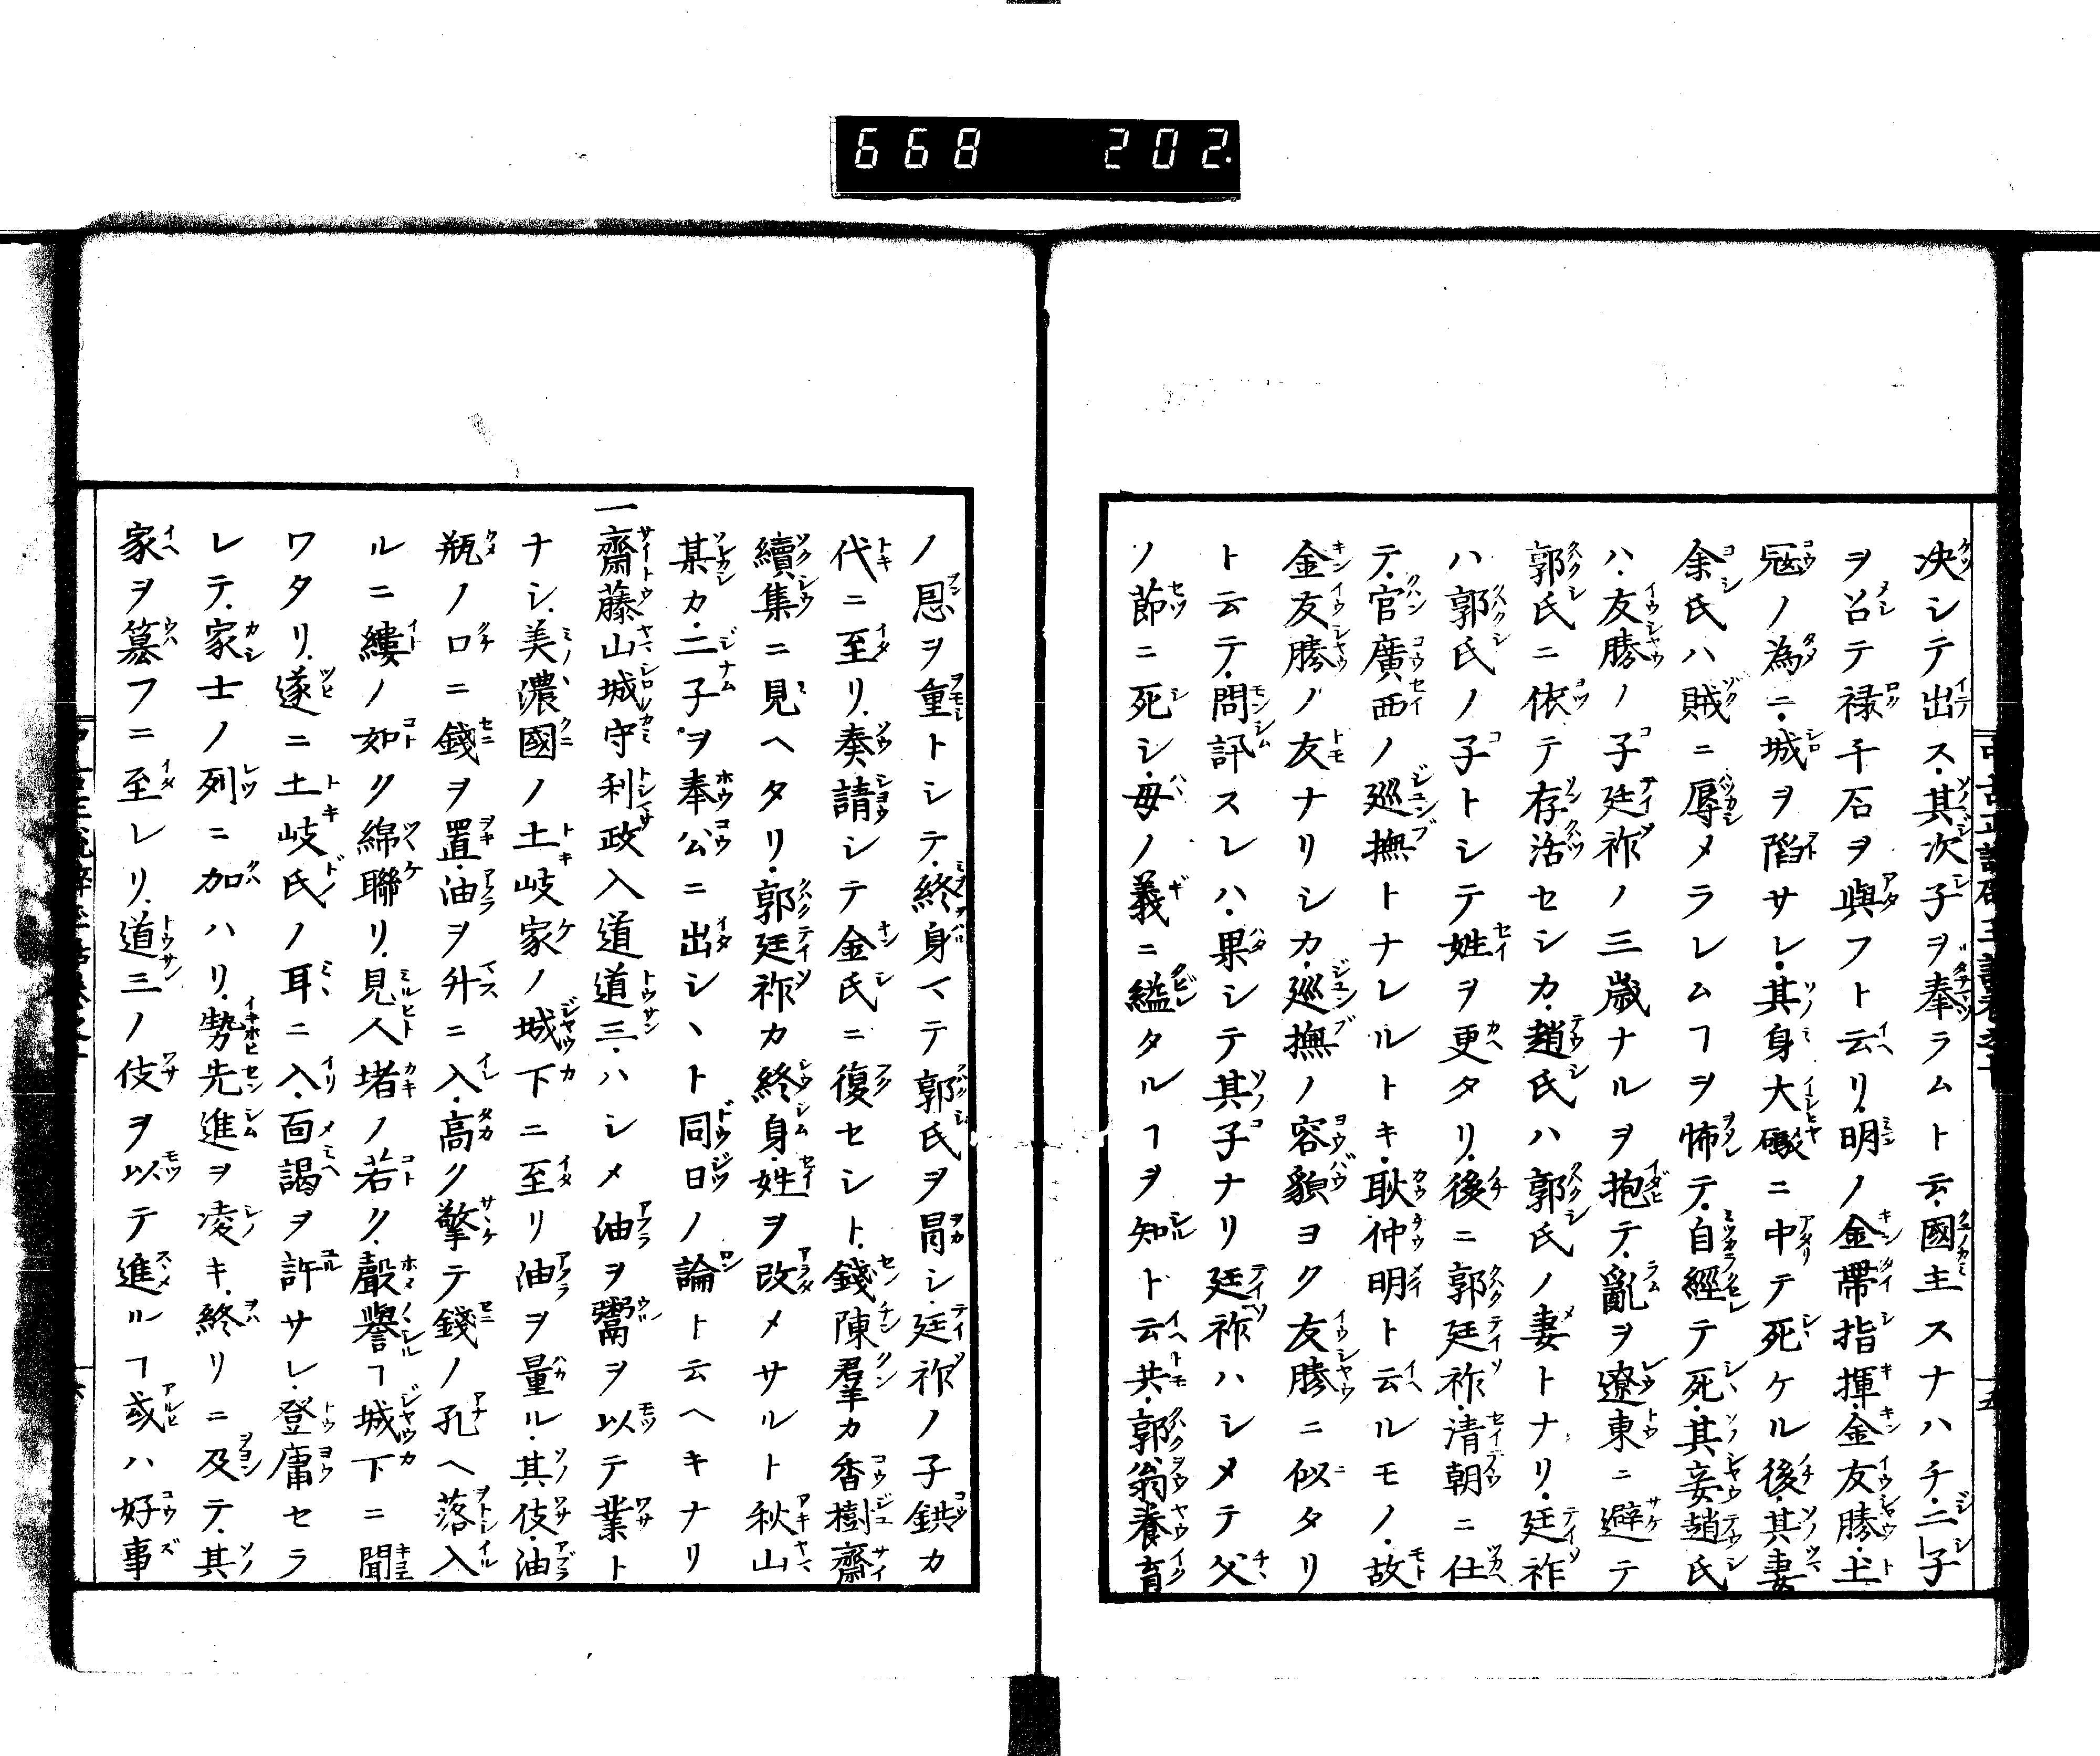 668 202
決シテ出ス.其次子ヲ奉ラムト云.國主スナハチ.二子
ヲ召テ禄千石ヲ與フト云リ.明ノ金帶指揮.金友勝.土
冦ノ為ニ.城ヲ陷サレ.其身大礟ニ中テ死ケル後.其妻
余氏ハ賊ニ辱メラレムヿヲ怖テ.自經テ死.其妾趙氏
ハ.友勝ノ子廷祚ノ三歳ナルヲ抱テ.亂ヲ遼東ニ避テ
郭氏ニ依テ存活セシカ.趙氏ハ郭氏ノ妻トナリ.廷祚
ハ郭氏ノ子トシテ姓ヲ更タリ.後ニ郭廷祚.清朝ニ仕
テ.官廣西ノ廵撫トナレルトキ.耿仲明ト云ルモノ.故
金友勝ノ友ナリシカ.廵撫ノ容貌ヨク友勝ニ似タリ
ト云テ.問訊スレハ.果シテ其子ナリ廷祚ハシメテ父
ノ節ニ死シ.母ノ義ニ縊タルヿヲ知ト云共.郭翁養育
ノ恩ヲ重トシテ.終身マテ郭氏ヲ冐シ.廷祚ノ子鉷カ
代ニ至リ.奏請シテ金氏ニ復セシト.錢陳羣カ香樹齋
續集ニ見ヘタリ.郭廷祚カ終身.姓ヲ改メサルト秋山
某カ.二子ヲ奉公ニ出シヽト同日ノ論ト云ヘキナリ
一齋藤山城守利政入道道三.ハシメ油ヲ鬻ヲ以テ業ト
ナシ.美濃國ノ土岐家ノ城下ニ至リ油ヲ量ル.其伎.油
瓶ノ口ニ錢ヲ置.油ヲ升ニ入.高ク擎テ錢ノ孔ヘ落入
ルニ縷ノ如ク綿聯リ.見人堵ノ若ク.聲譽ヿ城下ニ聞
ワタリ.遂ニ土岐氏ノ耳ニ入.面謁ヲ許サレ.登庸セラ
レテ.家士ノ列ニ加ハリ.勢先進ヲ凌キ.終リニ及テ.其
家ヲ簒フニ至レリ.道三ノ伎ヲ以テ進ルヿ或ハ好事